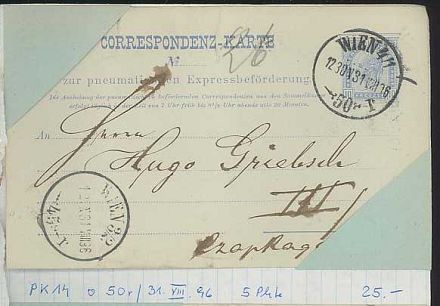 CORRESPONDENZ-KARTE
№
zur pneumatischen Expressbeförderung
Die Aushebung der pneumatisch zu befördernden Correspondenzen aus den Sammelkästen
erfolgt täglich in der Zeit von 7 Uhr früh bis 9 Uhr abends alle 20 Minuten.
WIEN 4/1
50 I
An Herrn
Hugo Griebsch
III/
WIEN
PK 14 o 50r / 31. VIII. 96 5 Phk 25.-